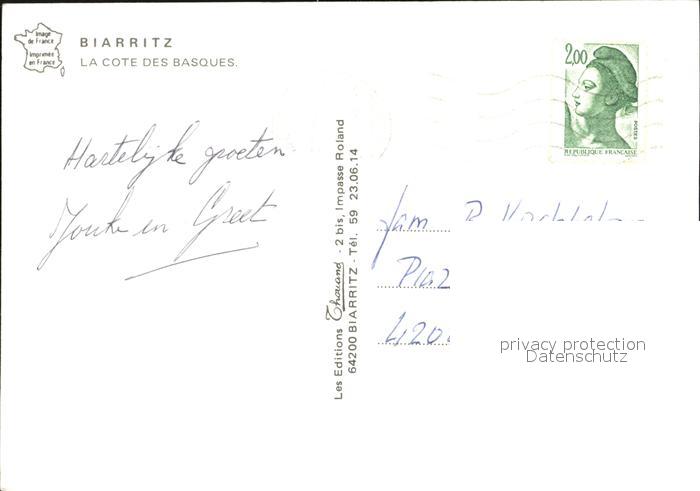 Image
de France
Imprimée
en France
BIARRITZ
LA COTE DES BASQUES.
Hartelijke groeten
Jouke en Greet
Les Editions Thouand - 2 bis, Impasse Roland
64200 BIARRITZ - Tél. 59 23.06.14
2,00
POSTES
REPUBLIQUE FRANÇAISE
fam
Plaz
420
privacy protection
Datenschutz